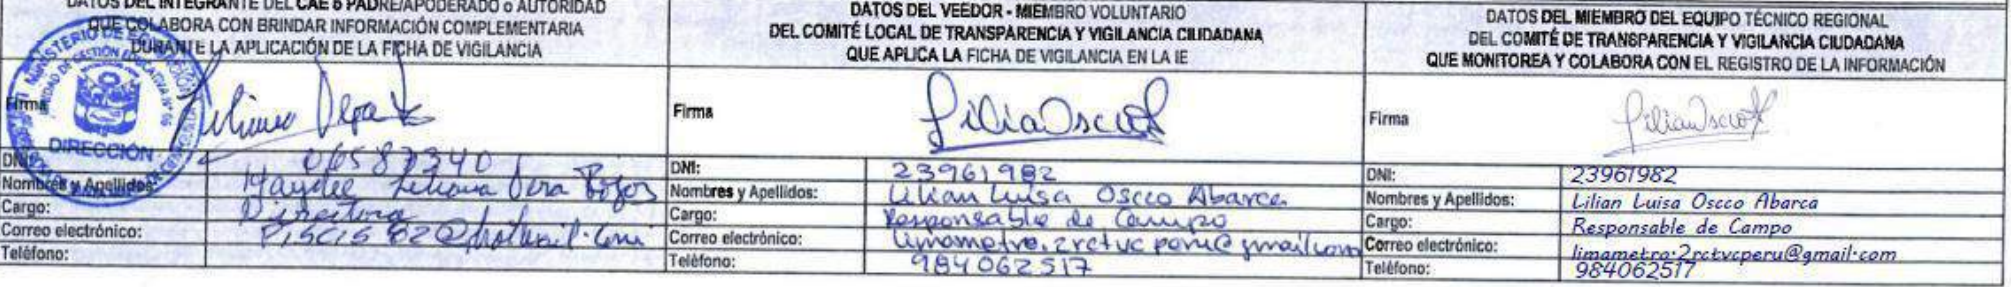 DATOS DEL INTEGRANTE DEL CAE o PADRE/APODERADO o AUTORIDAD
QUE COLABORA CON BRINDAR INFORMACIÓN COMPLEMENTARIA
DURANTE LA APLICACIÓN DE LA FICHA DE VIGILANCIA
Firma
DIRECCIÓN
DNI: 06587340
Nombres y Apellidos: Haydee Liliana Vera
Cargo: Directora
Correo electrónico:
Teléfono:
DATOS DEL VEEDOR - MIEMBRO VOLUNTARIO
DEL COMITÉ LOCAL DE TRANSPARENCIA Y VIGILANCIA CIUDADANA
QUE APLICA LA FICHA DE VIGILANCIA EN LA IE
Firma
DNI: 23961982
Nombres y Apellidos: Lilian Luisa Oscco Abarca
Cargo: Responsable de Campo
Correo electrónico: limametro.2rctvcperu@gmail.com
Teléfono: 984062517
DATOS DEL MIEMBRO DEL EQUIPO TÉCNICO REGIONAL
DEL COMITÉ DE TRANSPARENCIA Y VIGILANCIA CIUDADANA
QUE MONITOREA Y COLABORA CON EL REGISTRO DE LA INFORMACIÓN
Firma
DNI: 23961982
Nombres y Apellidos: Lilian Luisa Oscco Abarca
Cargo: Responsable de Campo
Correo electrónico: limametro.2rctvcperu@gmail.com
Teléfono: 984062517